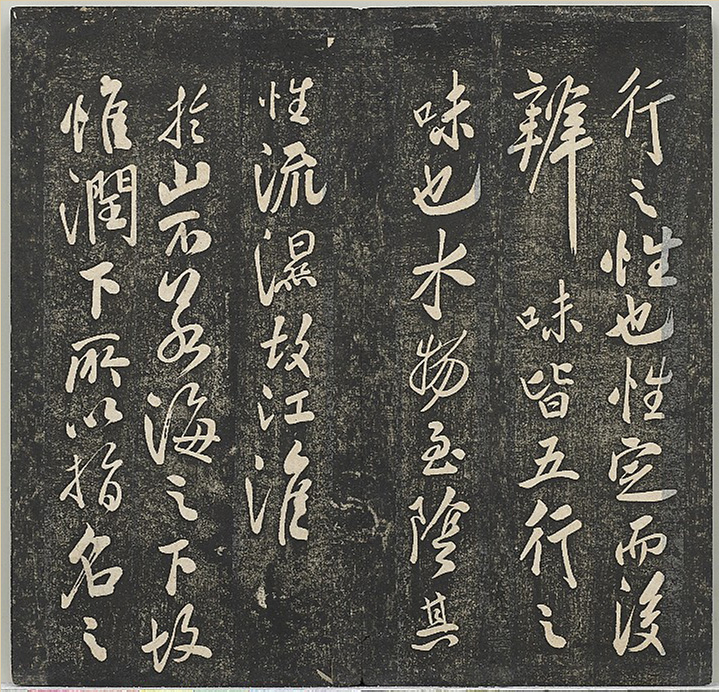 行之性也性定而後
辨味皆五行之
味也水物至陰其
性流濕故江淮
於山不若海之下故
惟潤下所以指名之